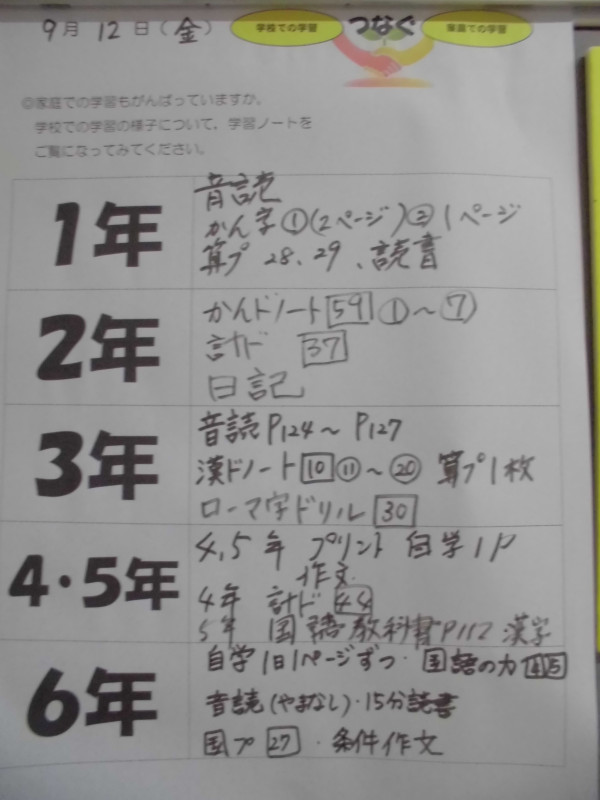 9月 12日(金)
学校での学習 つなぐ 家庭での学習
◎家庭での学習もがんばっていますか。
学校での学習の様子について、学習ノートを
ご覧になってみてください。
1年
音読
かん字①(2ページ)②1ページ
算プ 28、29、読書
2年
かんドノート59 ①～⑦
計ド 37
日記
3年
音読 P124～P127
漢ドノート10⑪～⑳ 算プ1枚
ローマ字ドリル 30
4・5年
4,5年 プリント 自学1P
作文
4年 計ド 44
5年 国語教科書P112 漢字
6年
自学1日1ページずつ・国語の力45
音読(やまなし)・15分読書
国プ27・条件作文